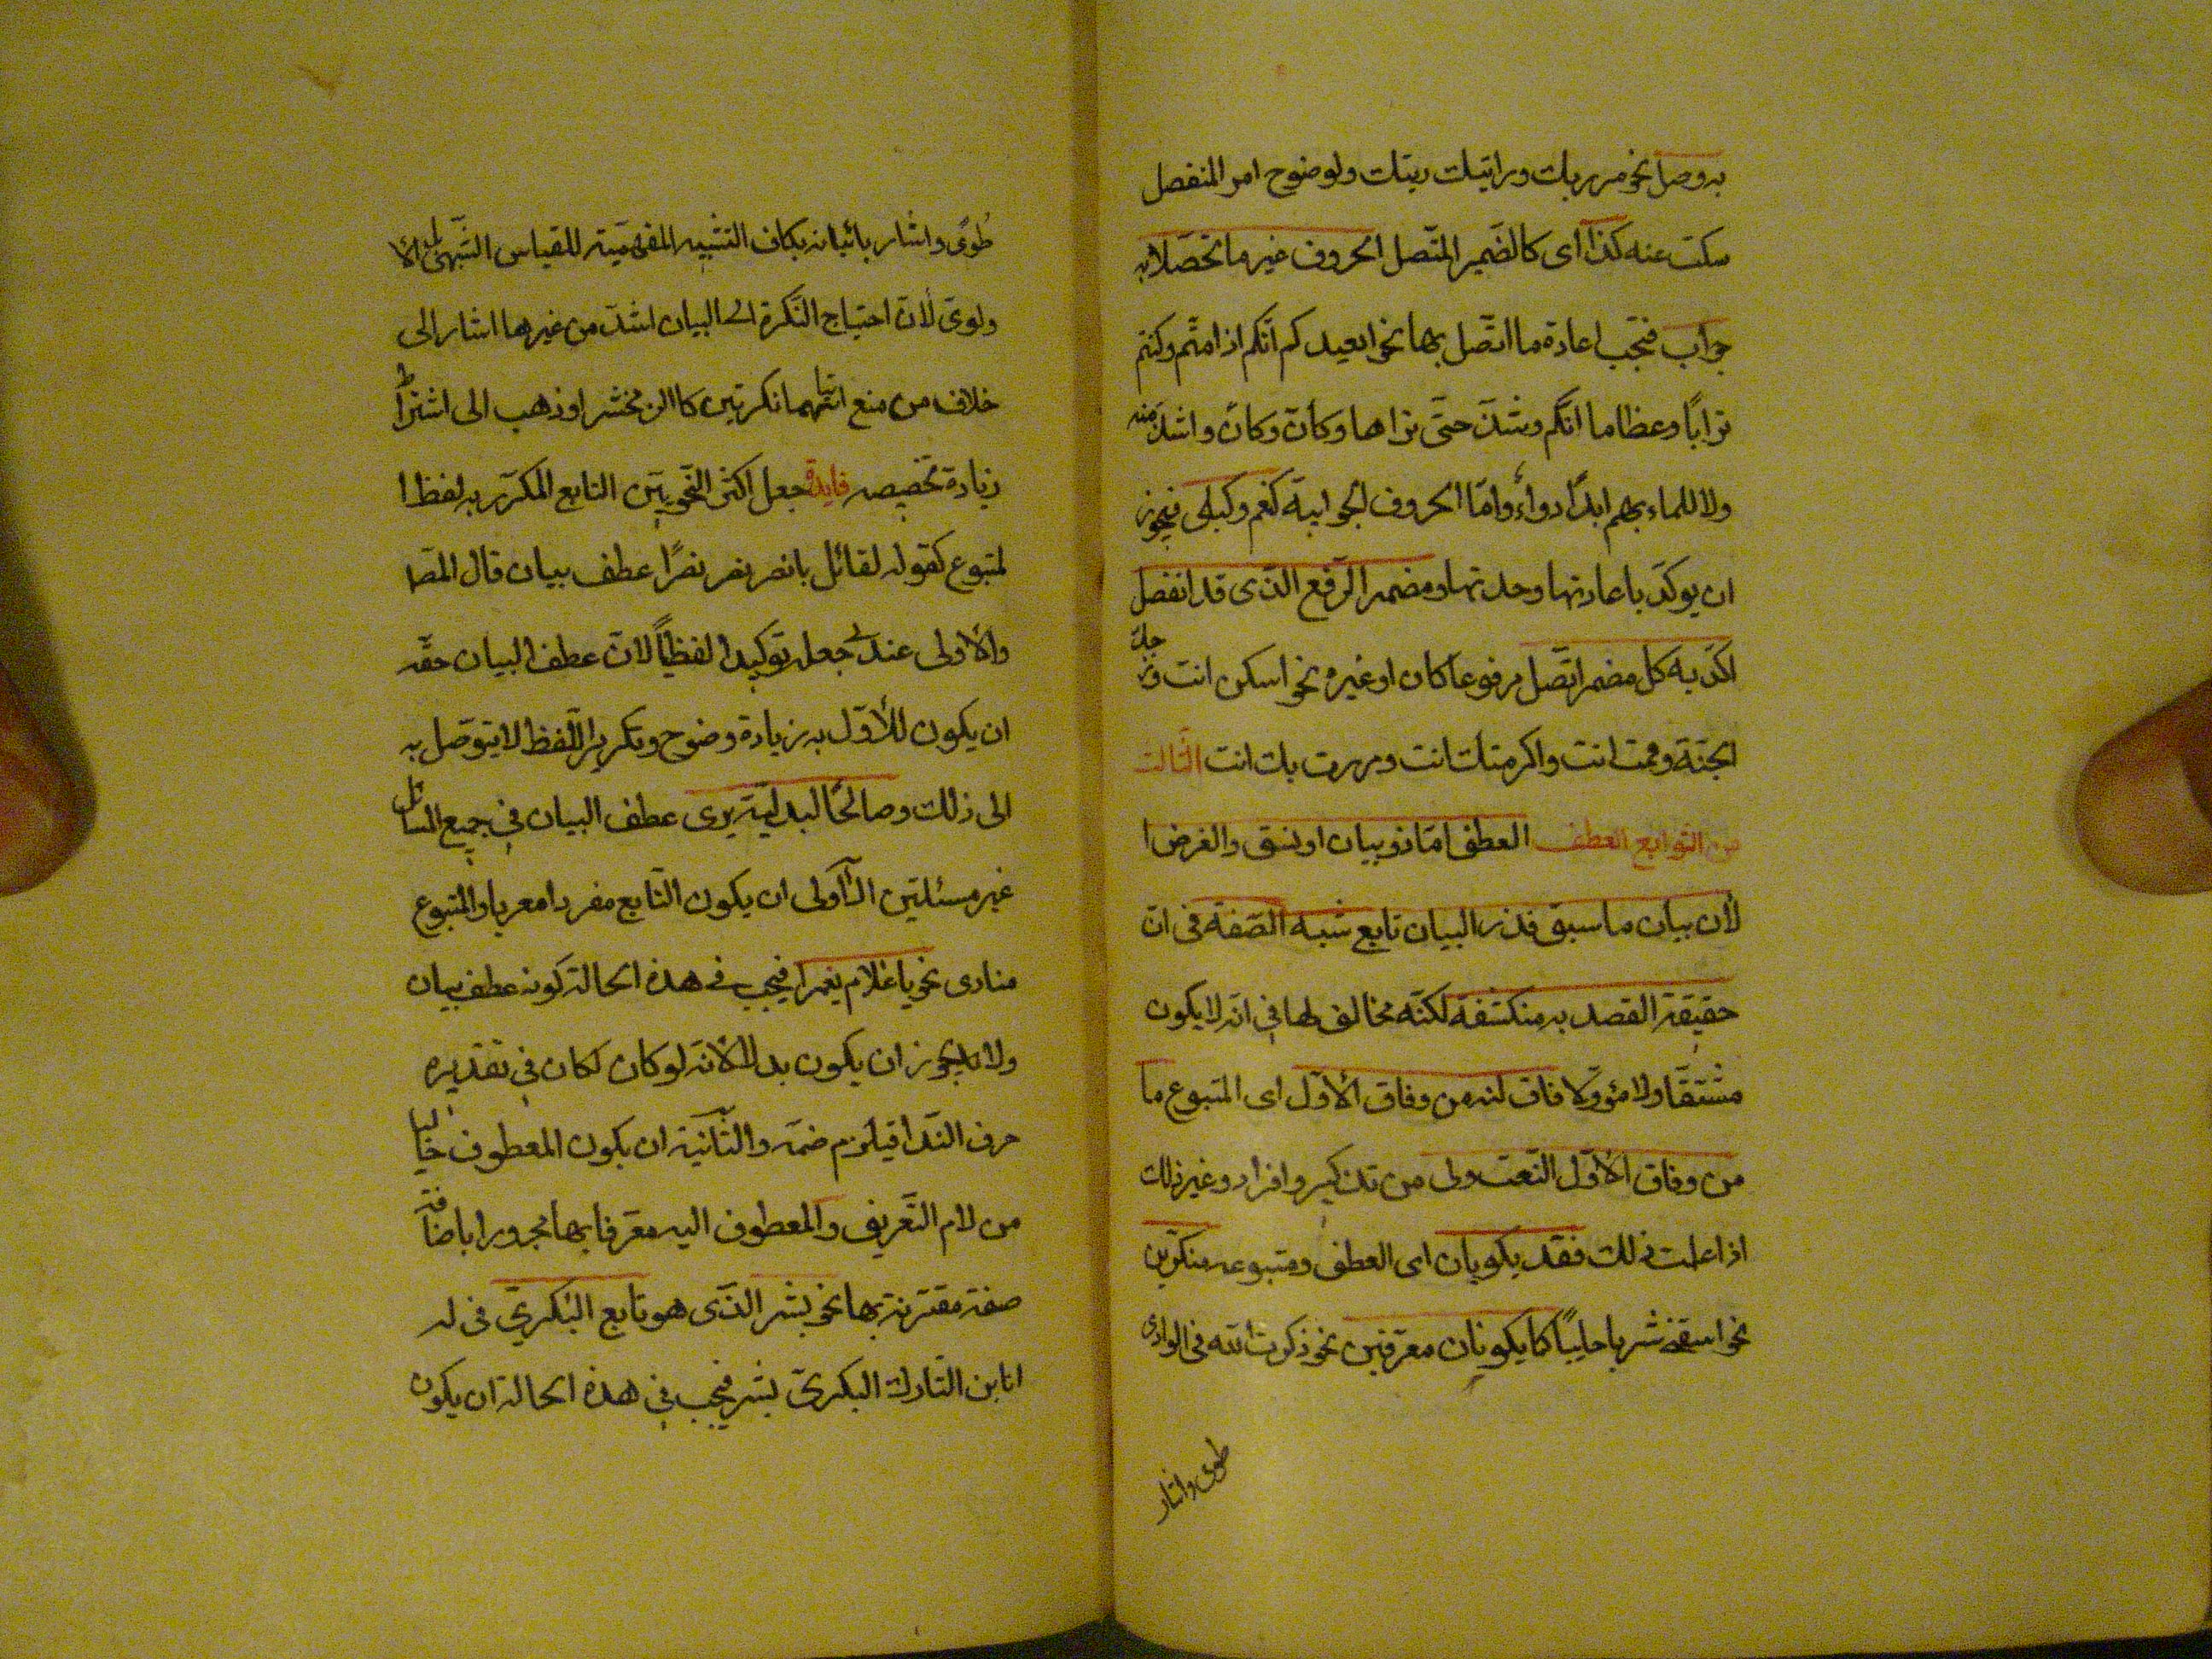 به وصل نحو مررت بك بك ورأيتك رأيتك ولوضوح امر المنفصل
سكت عنه كذا اى كالضمير المتصل الحروف غير ما تحصلا به
جواب فتجب اعادة ما اتصل بها نحو ايعدكم انكم اذا متم وكنتم
ترابا وعظاما انكم وشذ حتى تراها وكأن وكأن واشذ منه
ولا للما بهم ابدا دواء واما الحروف الجوابية كنعم وكبلى فيجوز
ان يوكد باعادتها وحدتها ومضمر الرفع الذى قد انفصل
اكد به كل مضمر اتصل مرفوعا كان او غيره نحو اسكن انت وزوجك
الجنة وقمت انت واكرمتك انت ومررت بك انت الثالث
من التوابع العطف العطف اما ذو بيان او نسق والغرض ا
لأن بيان ما سبق فذو البيان تابع شبه الصفة فى ان
حقيقة القصد به منكشفة لكنه مخالف لها فى انه لا يكون
مشتقا ولا مؤولا فاولينه من وفاق الأول اى المتبوع ما
من وفاق الأول النعت ولى من تذكير وافراد وغير ذلك
اذا علمت ذلك فقد يكونان اى العطف ومتبوعه منكرين
نحو اسقنى شربا حليبا كما يكونان معرفين نحو ذكرت الله فى الوادى
طوى واشار
طوى واشار باتيانه بكاف التشبيه المفهمية للقياس الشبهى بل الا
ولوى لأن احتياج النكرة الى البيان اشد من غيرها اشار الى
خلاف من منع اتيانهما نكرتين كالزمخشرا وذهب الى اشتراط
زيادة تخصيصه فايدة جعل اكثر النحويين التابع المكرر به لفظ ا
لمتبوع كقوله لقائل يا نصر نصر نصرا عطف بيان قال المصـ
والأولى عندى جعله توكيدا لفظيا لان عطف البيان حقه
ان يكون للأول به زيادة وضوح وتكرير اللفظ لا يتوصل به
الى ذلك وصالحا لبدلية يرى عطف البيان فى جميع المسائل
غير مسئلتين الأولى ان يكون التابع مفردا معربا والمتبوع
منادى نحو يا غلام يعمرا فيجب فى هذه الحالة كونه عطف بيان
ولا يجوز ان يكون بدلا لأنه لو كان لكان فى تقديره
حرف الندا فيلزم ضمه والثانية ان يكون المعطوف خاليا
من لام التعريف والمعطوف اليه معرفا بها مجرورا باضافة
صفة مقترنة بها نحو بشر الذى هو تابع البكرى فى له
انا ابن التارك البكرى بشر فيجب فى هذه الحالة ان يكون